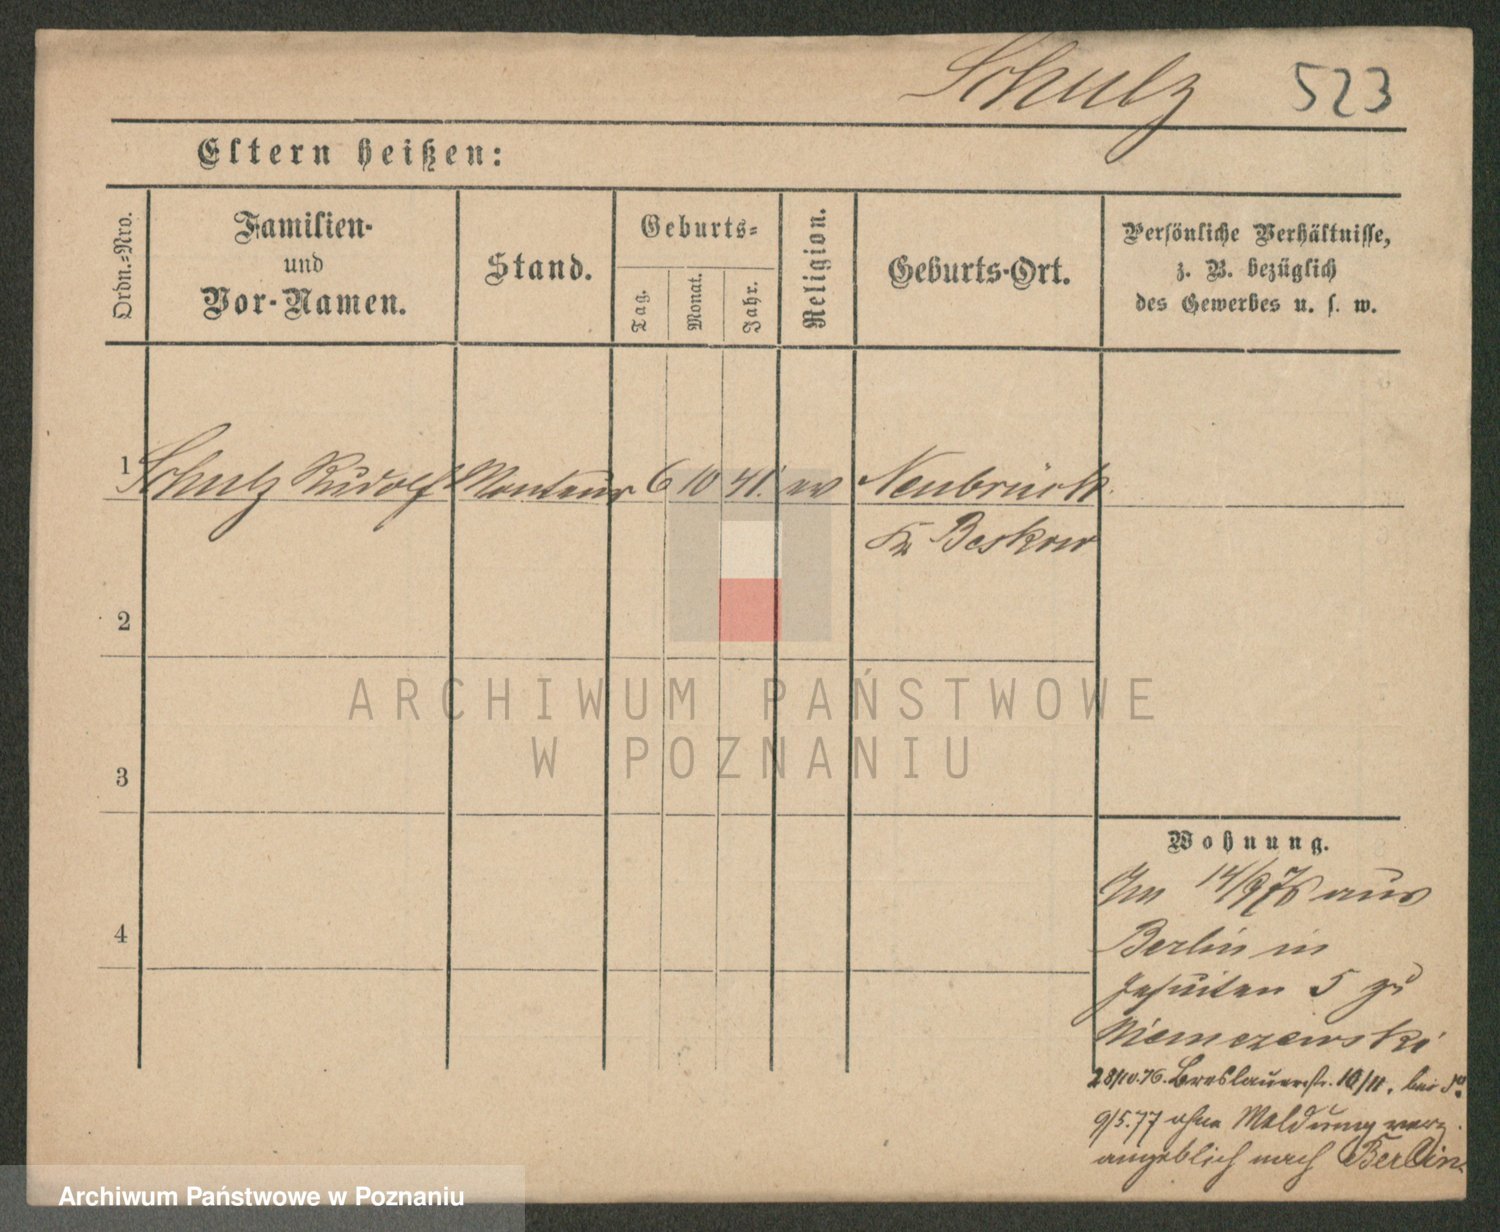 Schulz 523
Eltern heißen:
Ordn.-Nro.
Familien-
und
Vor-Namen.
Stand.
Geburts-
Tag.
Monat.
Jahr.
Religion.
Geburts-Ort.
Persönliche Verhältnisse,
z. B. bezüglich
des Gewerbes u. s. w.
1 Schulz Rudolf Monteur 6 10 41. ev Neubrück
Kr Beskow
2
3
4
ARCHIWUM PAŃSTWOWE
W POZNANIU
Wohnung.
14/9 76 aus
Berlin in
Jesuiten 5 zu
Niemczewski
28/10.76. Breslauerstr. 10/11. bei
9/5.77 ohne Meldung verz.
angeblich nach Berlin.
Archiwum Państwowe w Poznaniu